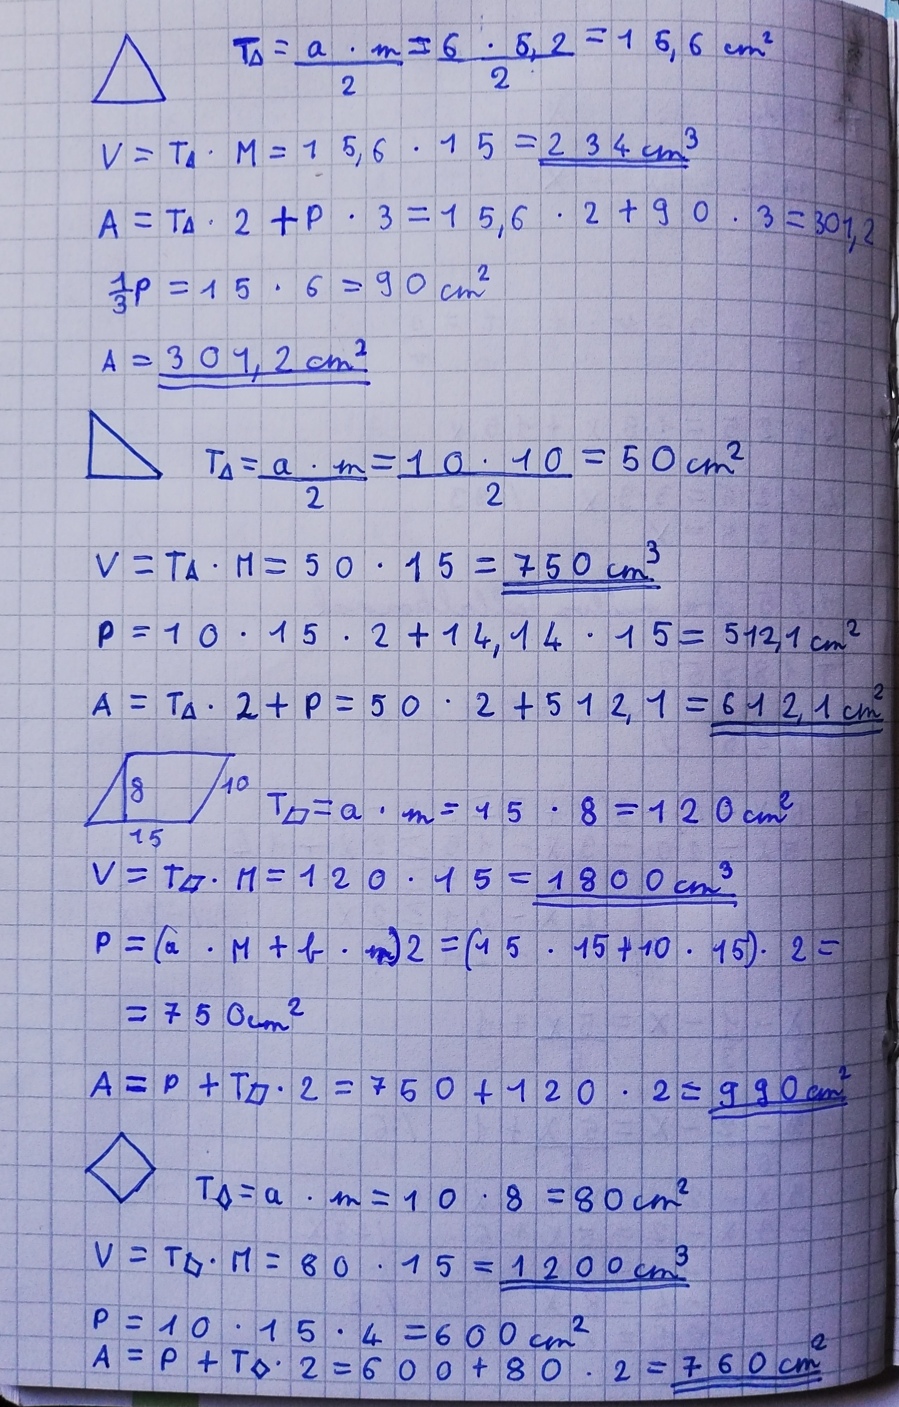 T△ = a · m / 2 = 6 · 5,2 / 2 = 15,6 cm²
V = T△ · M = 15,6 · 15 = 234 cm³
A = T△ · 2 + P · 3 = 15,6 · 2 + 90 · 3 = 301,2
1/3 P = 15 · 6 = 90 cm²
A = 301,2 cm²
T△ = a · m / 2 = 10 · 10 / 2 = 50 cm²
V = T△ · M = 50 · 15 = 750 cm³
P = 10 · 15 · 2 + 14,14 · 15 = 512,1 cm²
A = T△ · 2 + P = 50 · 2 + 512,1 = 612,1 cm²
8 10
15
T▱ = a · m = 15 · 8 = 120 cm²
V = T▱ · M = 120 · 15 = 1800 cm³
P = (a · M + b · m) 2 = (15 · 15 + 10 · 15) · 2 =
= 750 cm²
A = P + T▱ · 2 = 750 + 120 · 2 = 990 cm²
T◇ = a · m = 10 · 8 = 80 cm²
V = T▱ · M = 80 · 15 = 1200 cm³
P = 10 · 15 · 4 = 600 cm²
A = P + T◇ · 2 = 600 + 80 · 2 = 760 cm²